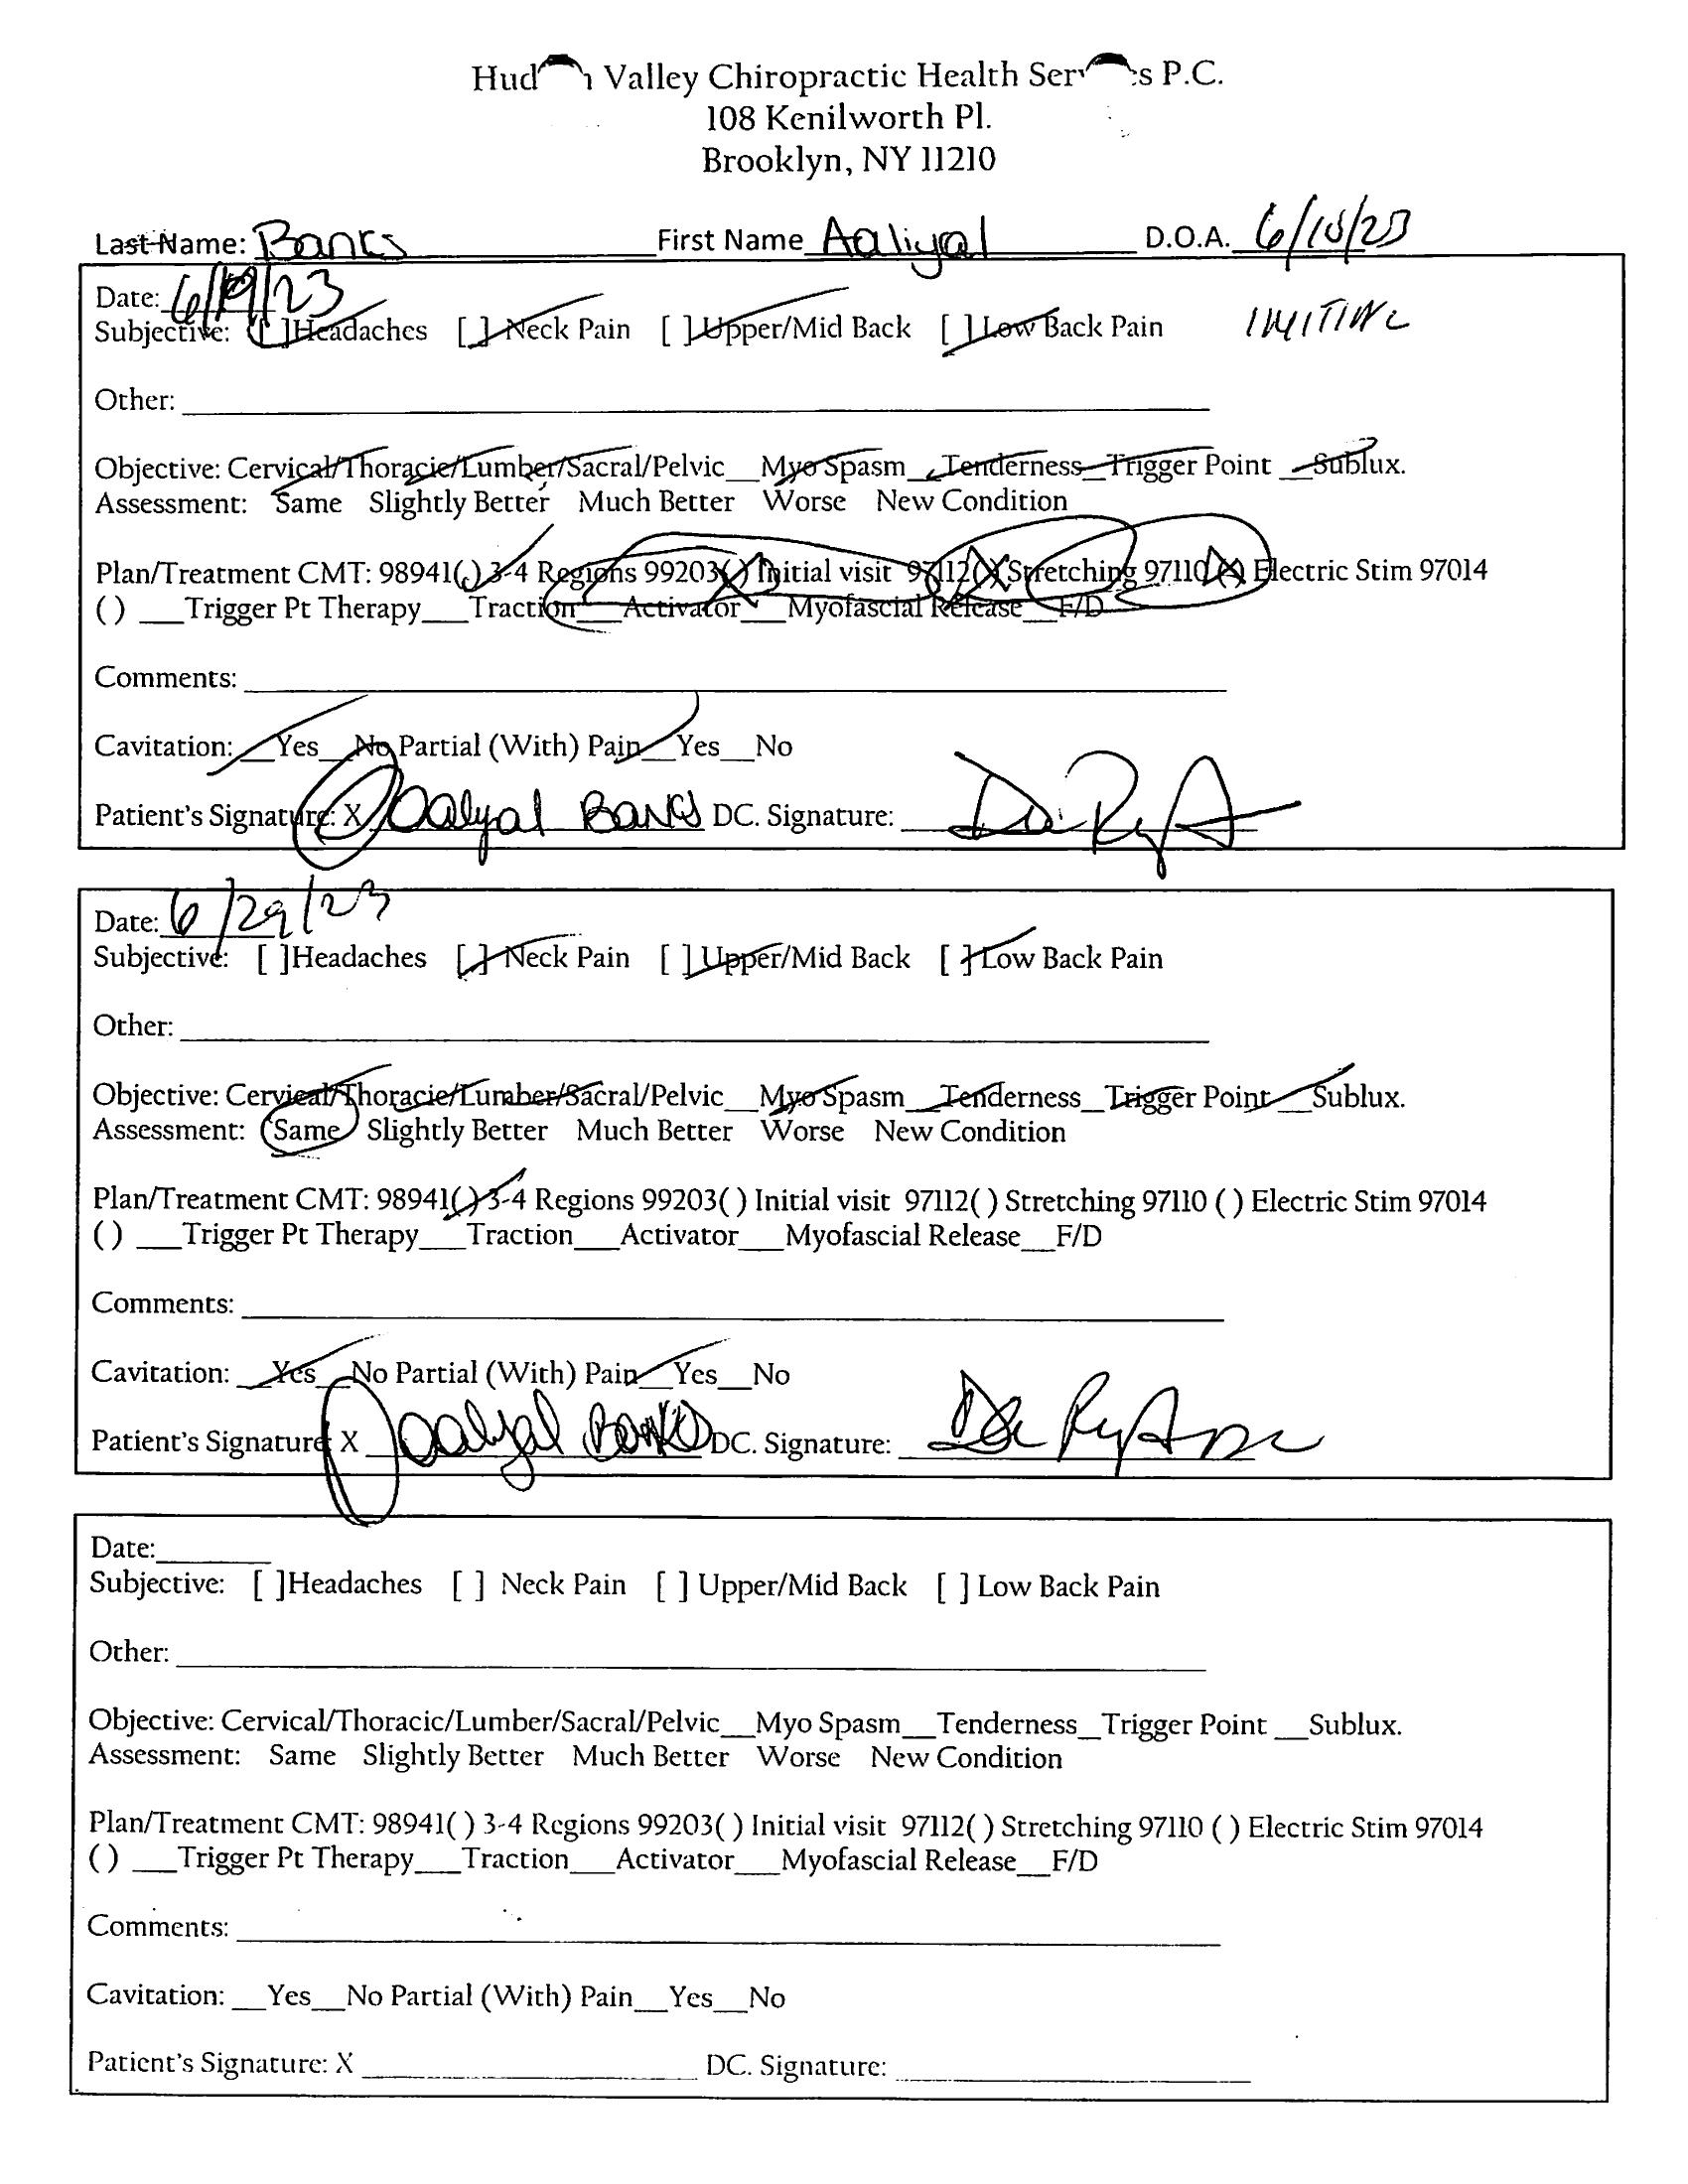 Hud n Valley Chiropractic Health Serv es P.C.
108 Kenilworth Pl.
Brooklyn, NY 11210
Last Name: Banks First Name Aaliyal D.O.A.
Date: 6/19/23
Subjective: [ ]Headaches [ ] Neck Pain [ ] Upper/Mid Back [ ] Low Back Pain
Other:
Objective: Cervical/Thoracic/Lumber/Sacral/Pelvic__Myo Spasm__Tenderness_Trigger Point __Sublux.
Assessment: Same Slightly Better Much Better Worse New Condition
Plan/Treatment CMT: 98941( ) 3-4 Regions 99203( ) Initial visit 97112( ) Stretching 97110 ( ) Electric Stim 97014
( ) ___Trigger Pt Therapy___Traction___Activator___Myofascial Release__F/D
Comments:
Cavitation: __Yes__No Partial (With) Pain__Yes__No
Patient's Signature: X Aalyal Banks DC. Signature:
Date: 6/29/23
Subjective: [ ]Headaches [ ] Neck Pain [ ] Upper/Mid Back [ ] Low Back Pain
Other:
Objective: Cervical/Thoracic/Lumber/Sacral/Pelvic__Myo Spasm__Tenderness_Trigger Point __Sublux.
Assessment: Same Slightly Better Much Better Worse New Condition
Plan/Treatment CMT: 98941( ) 3-4 Regions 99203( ) Initial visit 97112( ) Stretching 97110 ( ) Electric Stim 97014
( ) ___Trigger Pt Therapy___Traction___Activator___Myofascial Release__F/D
Comments:
Cavitation: __Yes__No Partial (With) Pain__Yes__No
Patient's Signature: X Aalyal Banks DC. Signature:
Date:
Subjective: [ ]Headaches [ ] Neck Pain [ ] Upper/Mid Back [ ] Low Back Pain
Other:
Objective: Cervical/Thoracic/Lumber/Sacral/Pelvic__Myo Spasm__Tenderness_Trigger Point __Sublux.
Assessment: Same Slightly Better Much Better Worse New Condition
Plan/Treatment CMT: 98941( ) 3-4 Regions 99203( ) Initial visit 97112( ) Stretching 97110 ( ) Electric Stim 97014
( ) ___Trigger Pt Therapy___Traction___Activator___Myofascial Release__F/D
Comments:
Cavitation: __Yes__No Partial (With) Pain__Yes__No
Patient's Signature: X DC. Signature: